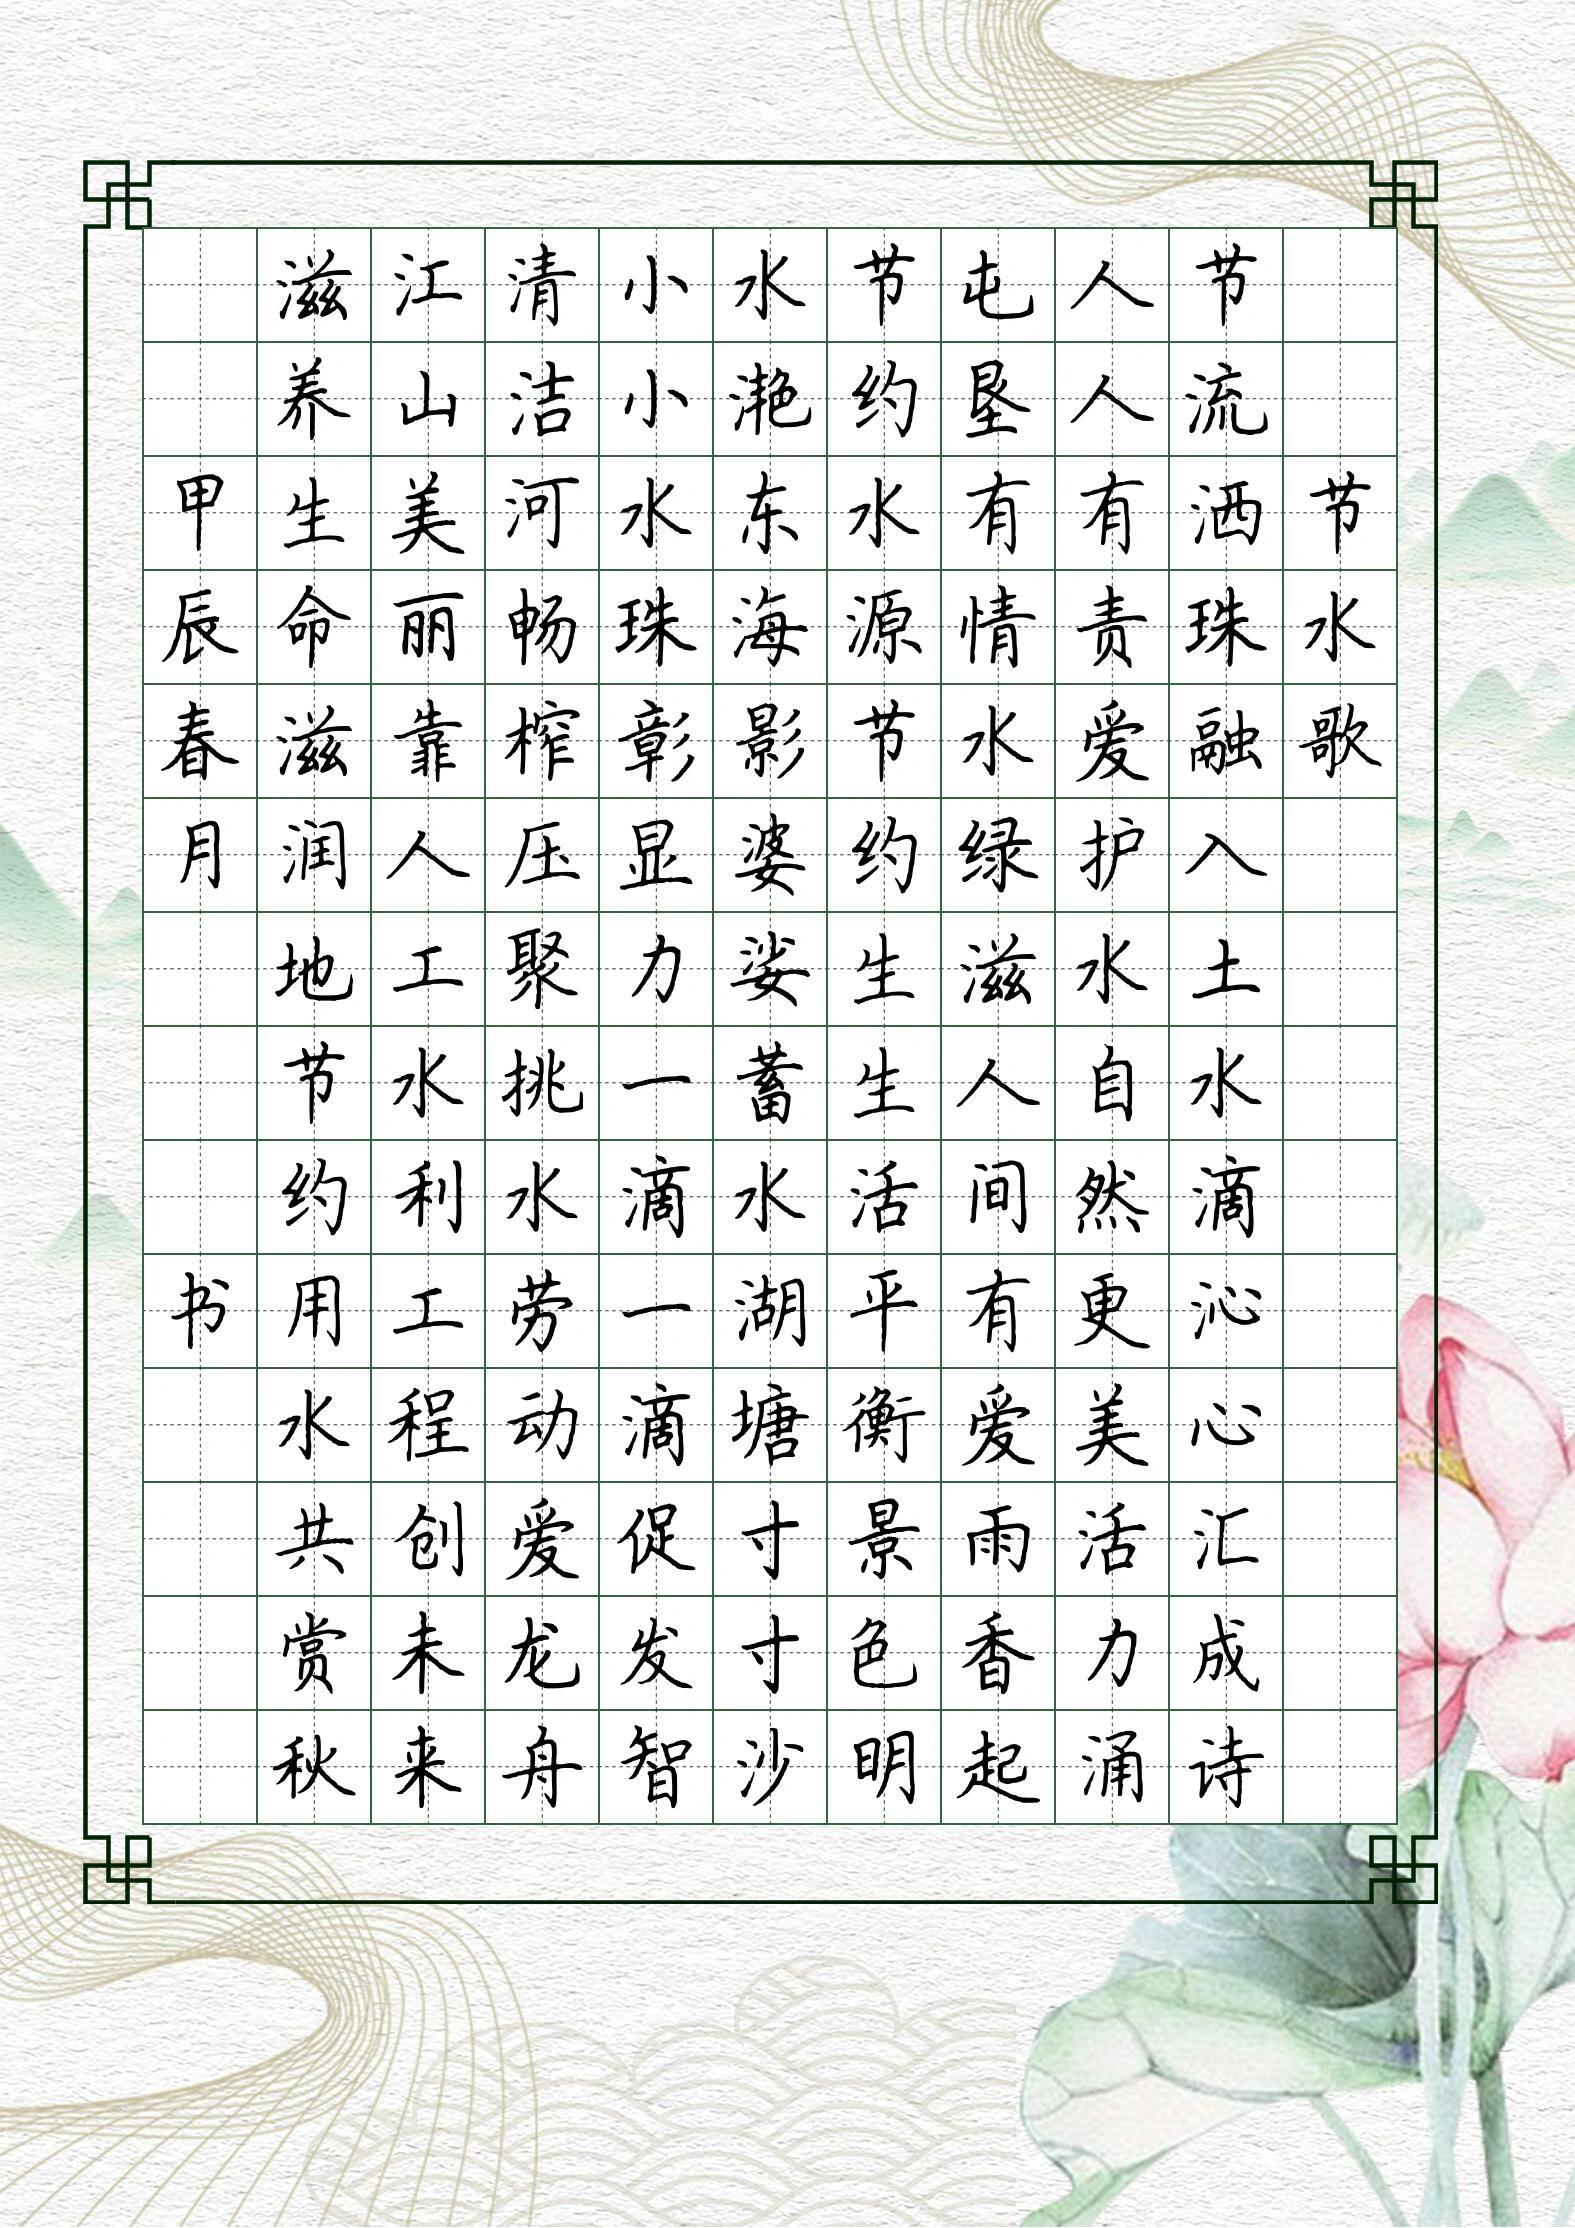 节水歌
节流洒珠融入土水滴沁心汇成诗
人人有责爱护水自然更美活力涌
屯垦有情水绿滋人间有爱雨香起
节约水源节约生生活平衡景色明
水滟东海影婆娑蓄水湖塘寸寸沙
小小水珠彰显力一滴一滴促发智
清洁河畅榨压聚挑水劳动爱龙舟
江山美丽靠人工水利工程创未来
滋养生命滋润地节约用水共赏秋
甲辰春月 书